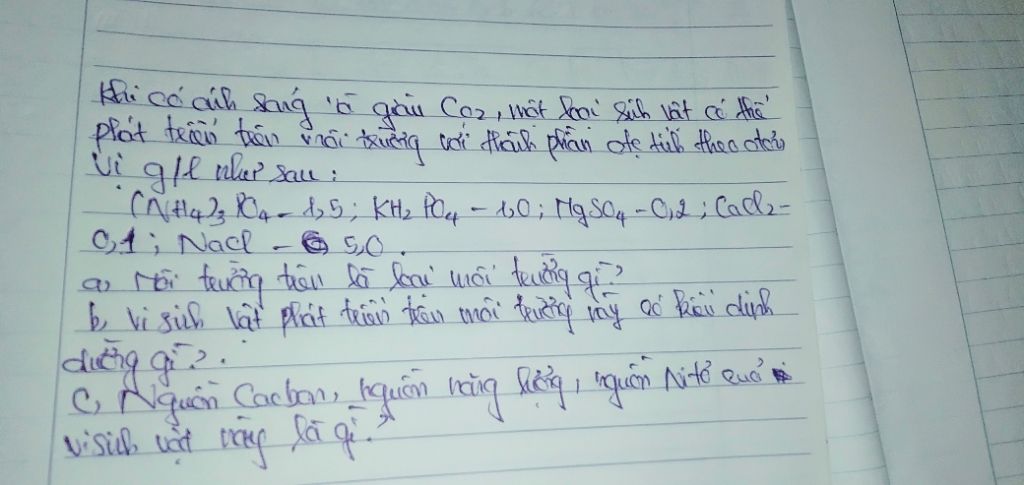 Khi có ánh sáng và giàu CO2, một loại sinh vật có thể
phát triển trên môi trường với thành phần đc tính theo đơn
vị g/l như sau :
(NH4)3 PO4 - 1,5 ; KH2 PO4 - 1,0 ; MgSO4 - 0,2 ; CaCl2 -
0,1 ; NaCl - 5,0 .
a, Môi trường trên là loại môi trường gì ?
b, Vi sinh vật phát triển trên môi trường này có kiểu dinh
dưỡng gì ? .
C, Nguồn Cacbon, nguồn năng lượng, nguồn Nitơ của
vi sinh vật này là gì ?